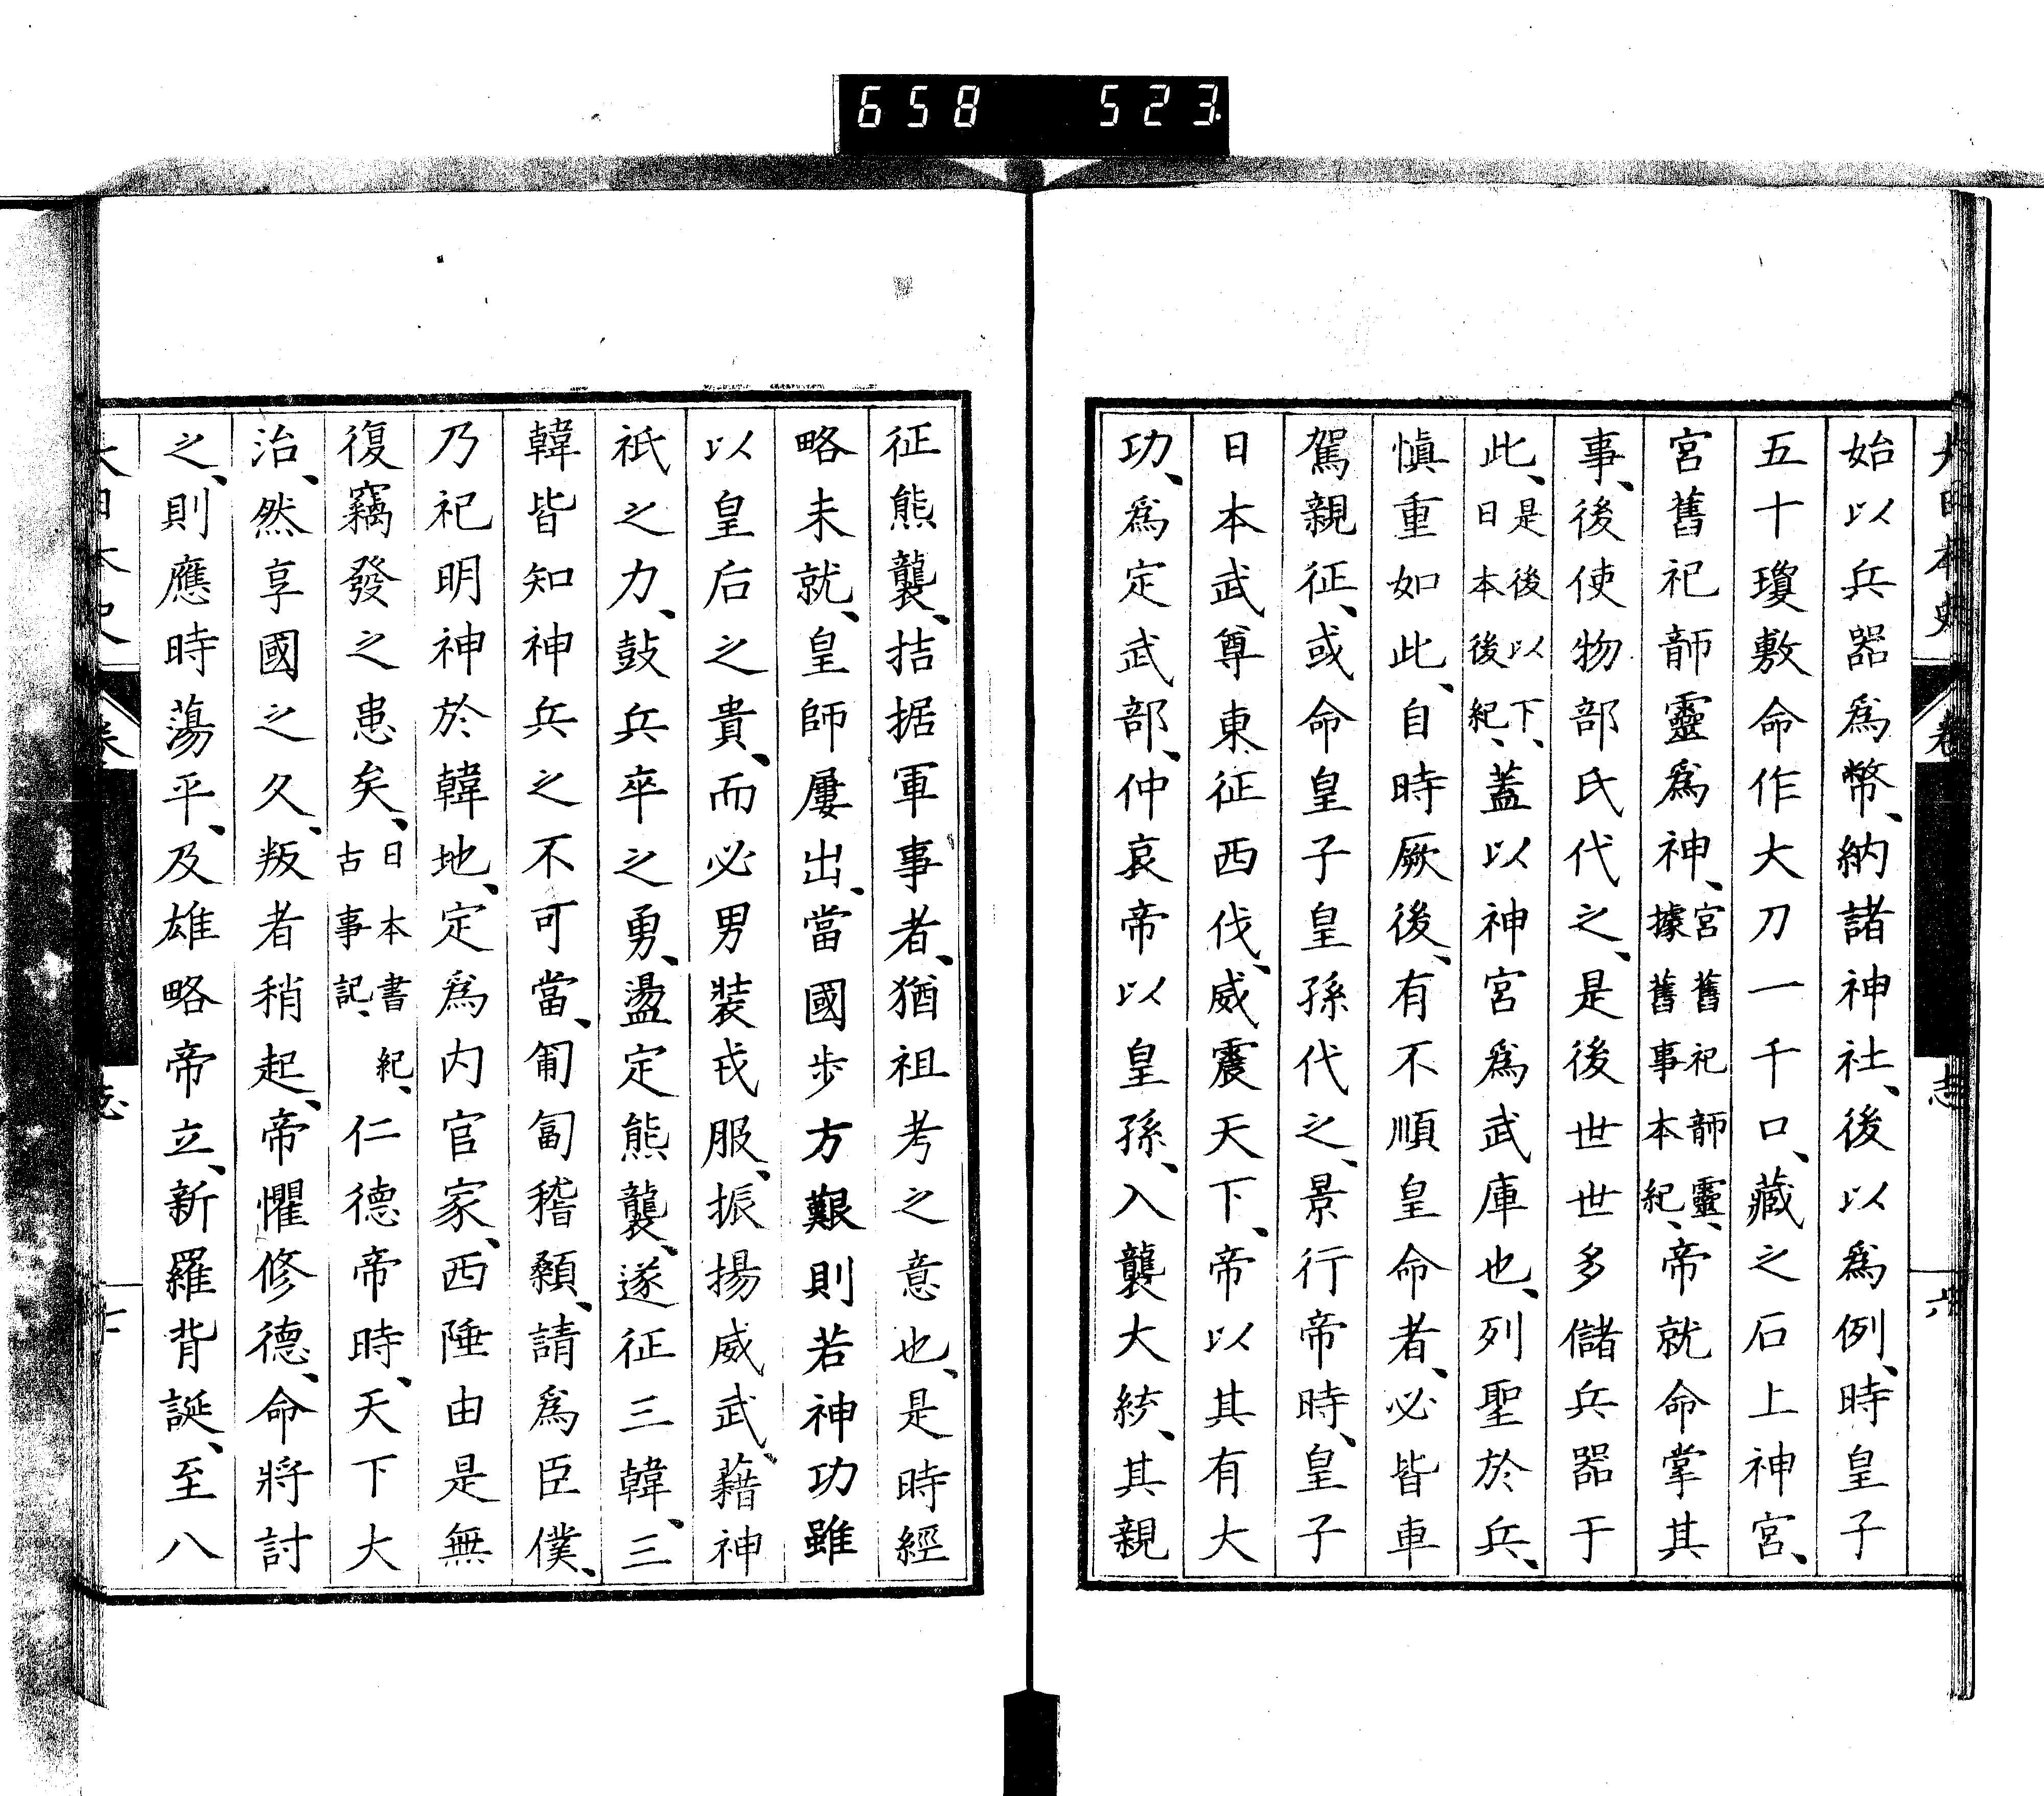 658 523
大日本史 卷 志 六
始以兵器爲幣、納諸神社、後以爲例、時皇子
五十瓊敷命作大刀一千口、藏之石上神宮、
宮舊祀韴靈爲神、宮舊祀韴靈、據舊事本紀、帝就命掌其
事、後使物部氏代之、是後世世多儲兵器于
此、是後以下、日本後紀、蓋以神宮爲武庫也、列聖於兵、
愼重如此、自時厥後、有不順皇命者、必皆車
駕親征、或命皇子皇孫代之、景行帝時、皇子
日本武尊東征西伐、威震天下、帝以其有大
功、爲定武部、仲哀帝以皇孫、入襲大統、其親
征熊襲、拮据軍事者、猶祖考之意也、是時經
略未就、皇師屢出、當國步方艱則若神功雖
以皇后之貴、而必男裝戎服、振揚威武、藉神
祇之力、鼓兵卒之勇、盪定熊襲、遂征三韓、三
韓皆知神兵之不可當、匍匐稽顙、請爲臣僕、
乃祀明神於韓地、定爲内官家、西陲由是無
復竊發之患矣、日本書紀、古事記、仁德帝時、天下大
治、然享國之久、叛者稍起、帝懼修德、命將討
之、則應時蕩平、及雄略帝立、新羅背誕、至八
大日本史 卷 志 七